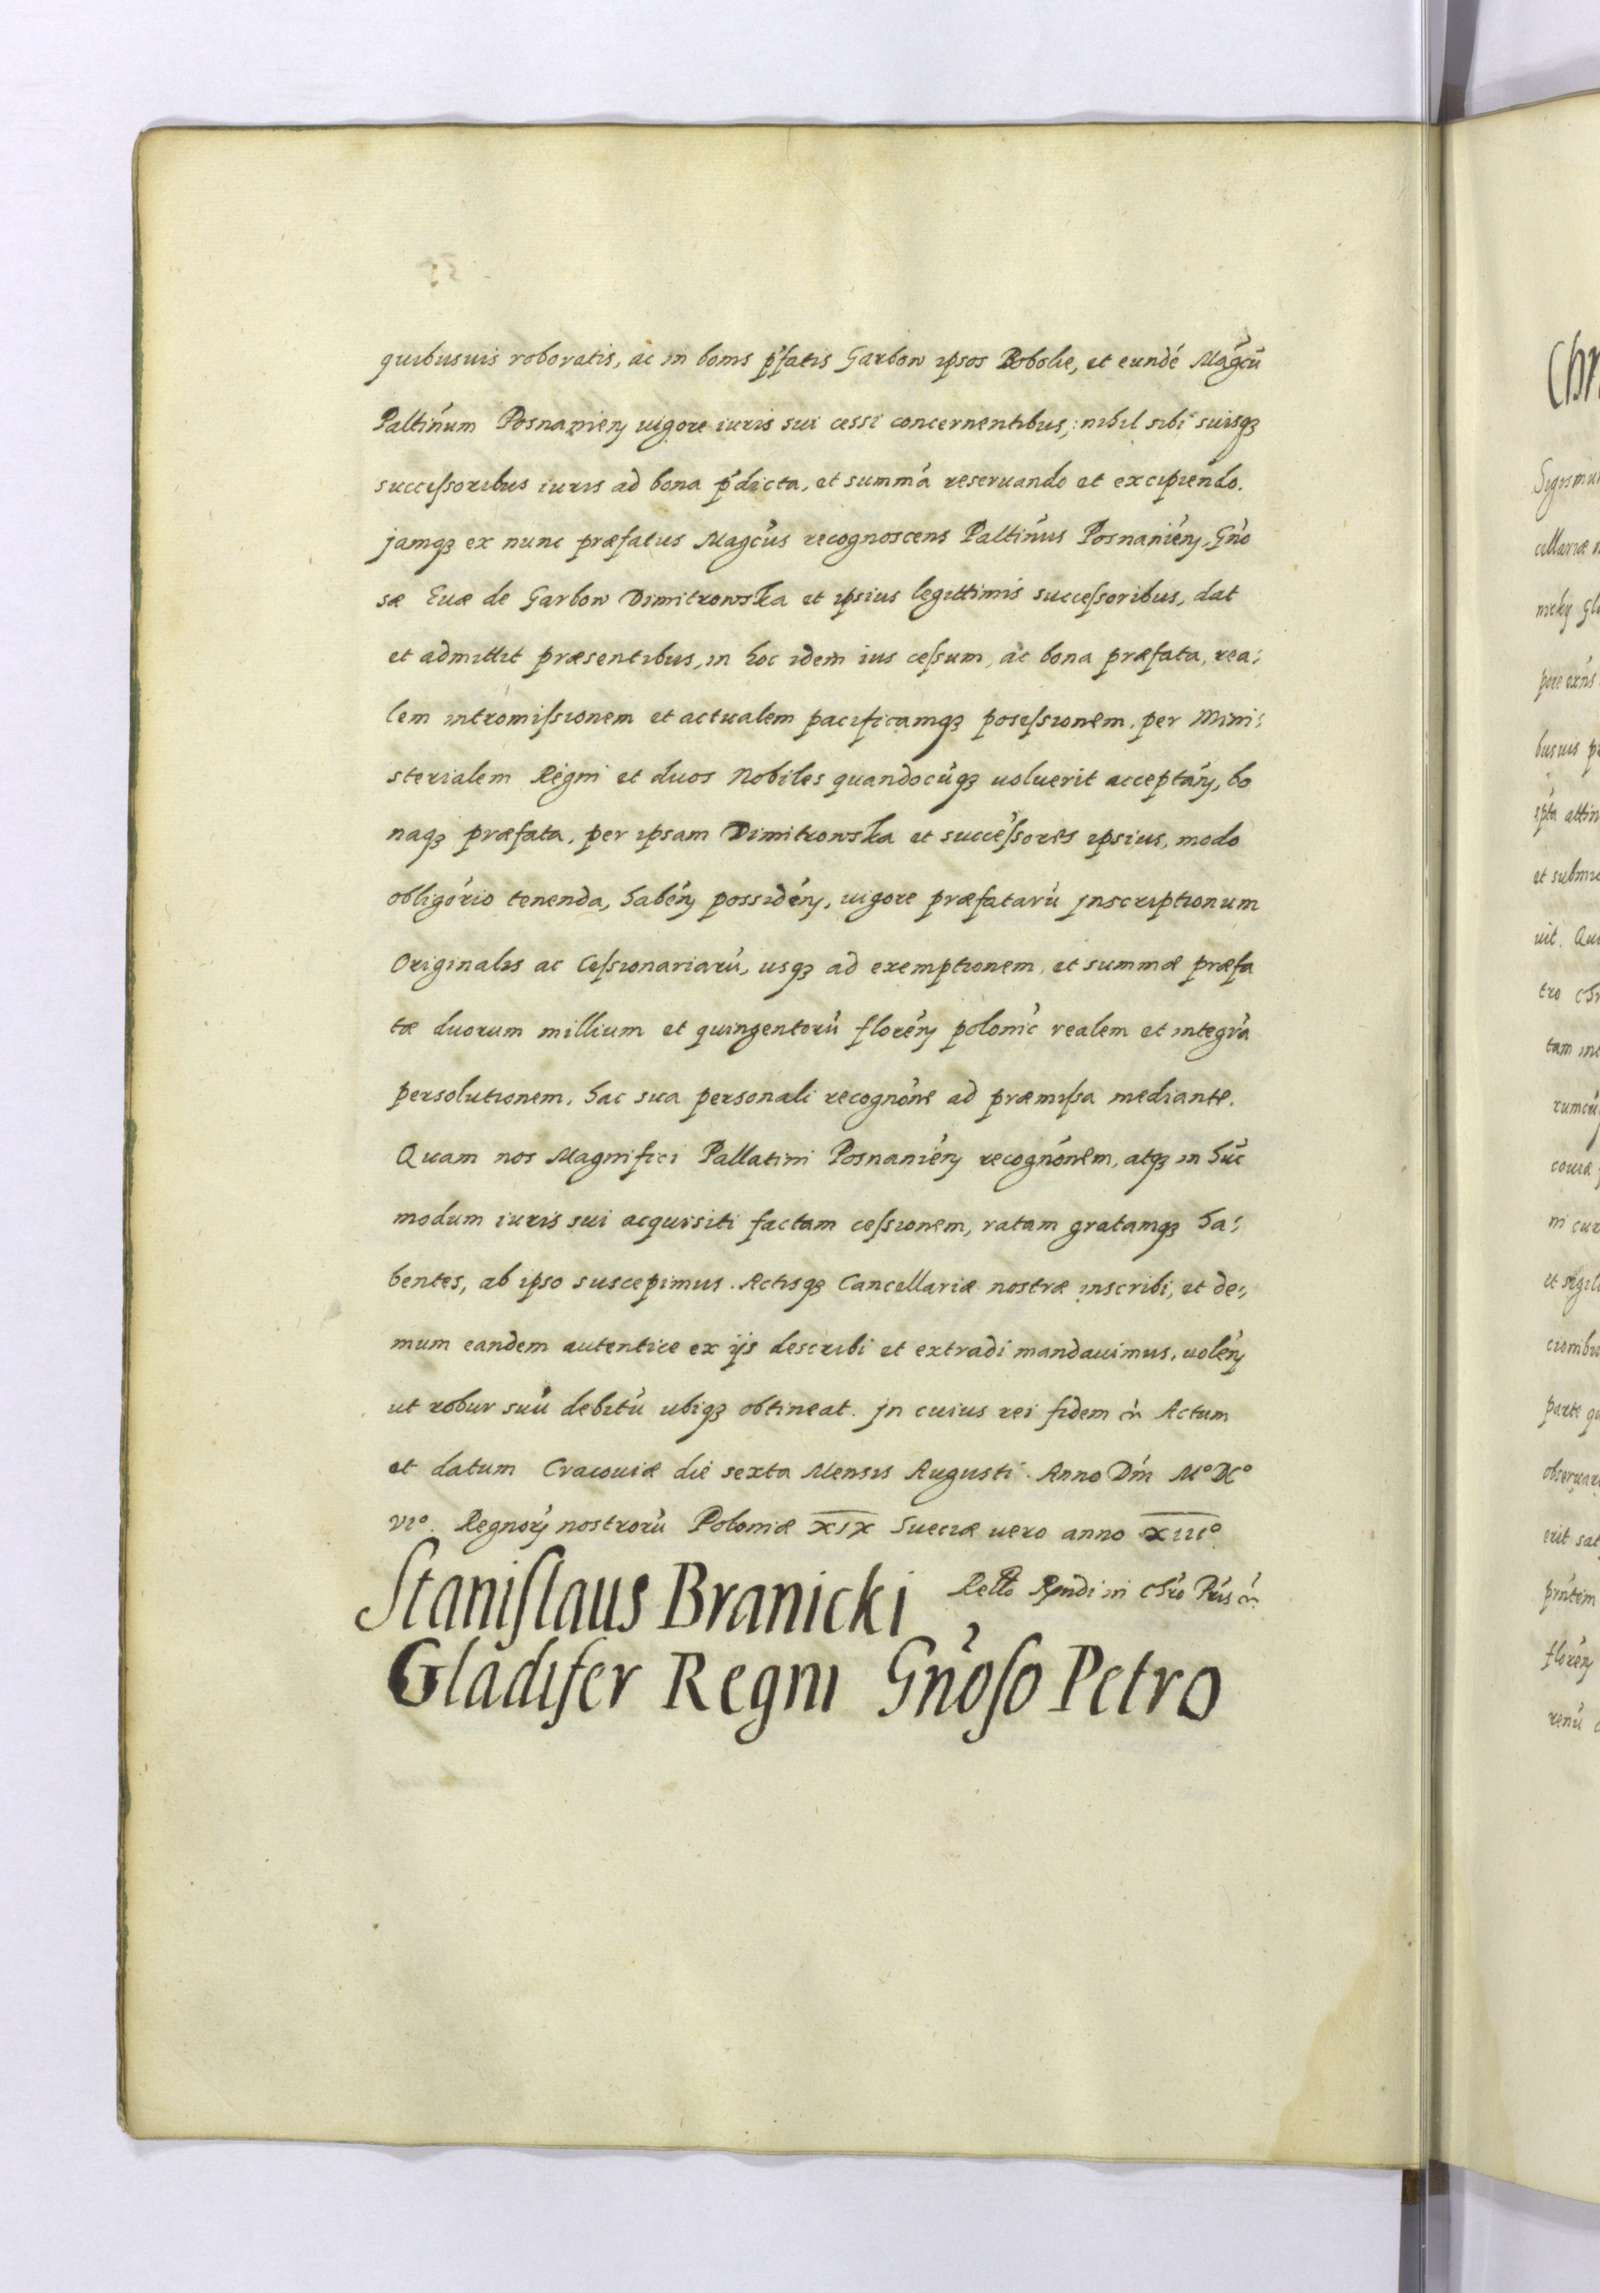 quibusuis roboratis, ac in bonis p̃fatis Garbow ipsos Bobole, et eundé Magcũ
Paltinum Posnanień vigore iuris sui cessi concernentibus, nihil sibi suisqꝫ
succeſsoribus iuris ad bona p̃dicta, et summá reseruando et excipiendo.
jamqꝫ ex nunc præfatus Magcus recognoscens Paltinus Posnanień, Gńo
sæ Euæ de Garbow Dimitrowska et ipsius legittimis succeſsoribus, dat
et admittit præsentibus, in hoc idem ius ceſsum, ac bona præfata, rea:
lem intromiſsionem et actualem pacificamqꝫ poseſsionem, per Mini:
sterialem Regni et duos Nobiles quandocũqꝫ uoluerit acceptań, bo
naqꝫ præfata, per ipsam Dimitrowska et succeſsores ipsius, modo
obligório tenenda, habeń possideń, uigore præfatarũ jnscriptionum
Originalis ac Ceſsionariarũ, usqꝫ ad exemptionem, et summæ præfa
tæ duorum millium et quingentorũ floreń polonic realem et integrá
persolutionem, hac sua personali recognóne ad præmiſsa mediante.
Quam nos Magnifici Pallatini Posnanień recognónem, atqꝫ in húc
modum iuris sui acquisiti factam ceſsionem, ratam gratamqꝫ ha:
bentes, ab ipso suscepimus. Actisqꝫ Cancellariæ nostræ inscribi, et de:
mum eandem autentice ex ijs describi et extradi mandauimus, uoleń
ut robur suũ debitũ ubiqꝫ obtineat. jn cuius rei fidem &c Actum
et datum Cracouiæ die sexta Mensis Augusti. Anno Dńi M° DC°
VI°. Regnorũ nostrorũ Poloniæ XIX Sueciæ uero anno XIII°
Staniſlaus Branicki
Gladifer Regni Gńoſo Petro